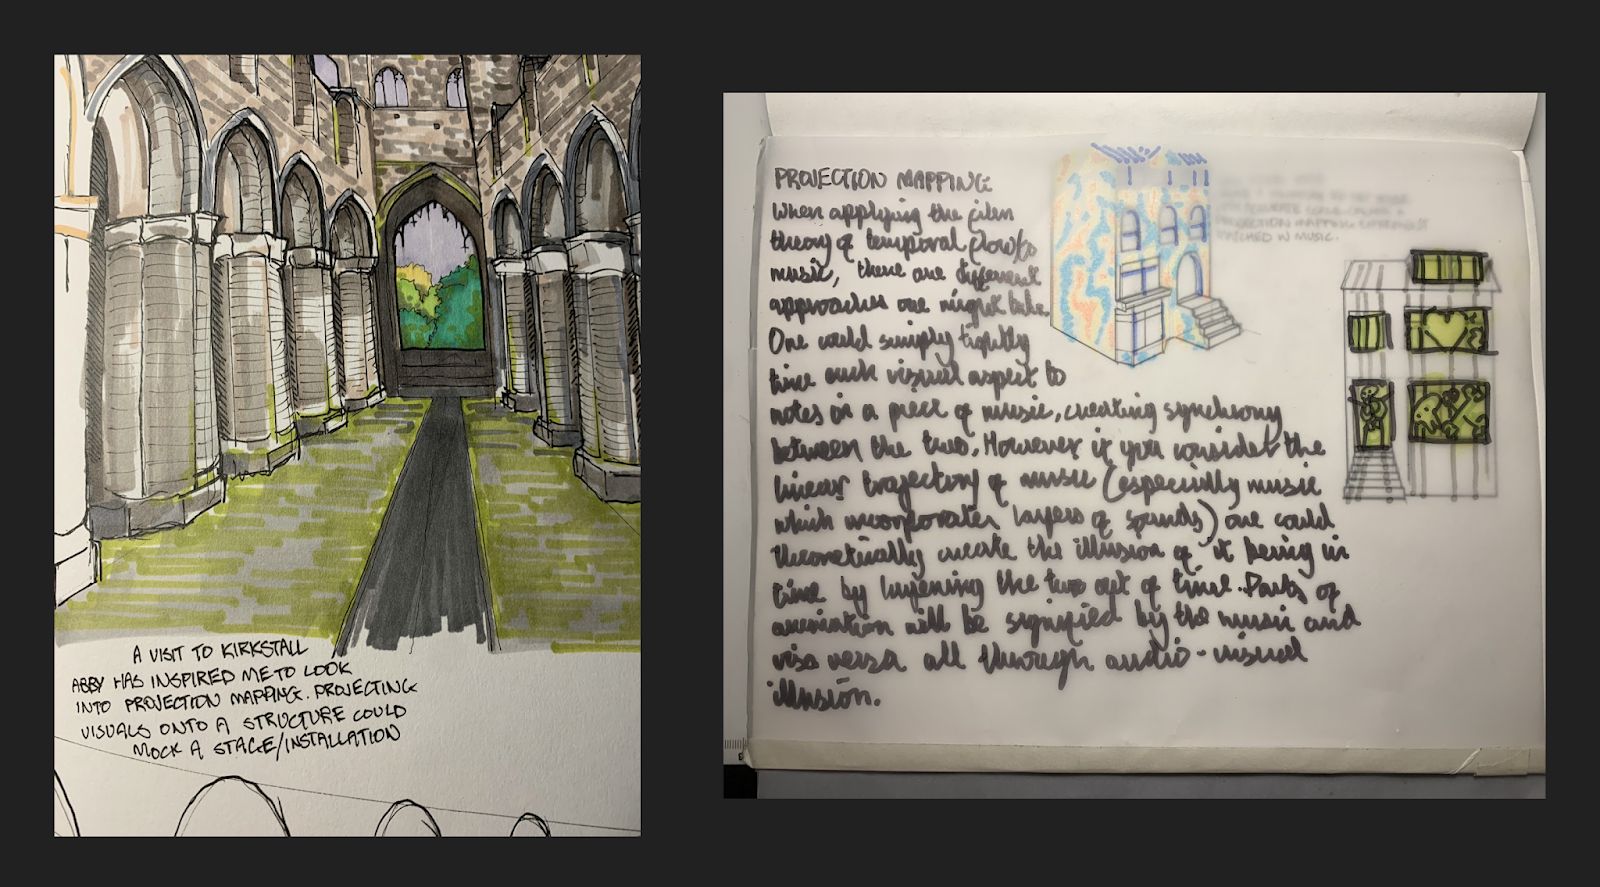 A VISIT TO KIRKSTALL
ABBY HAS INSPIRED ME TO LOOK
INTO PROJECTION MAPPING. PROJECTING
VISUALS ONTO A STRUCTURE COULD
MOCK A STAGE/INSTALLATION
PROJECTION MAPPING
When applying the film
theory of temporal flow to
music, there are different
approaches one might take.
One could simply tightly
time each visual aspect to
notes in a piece of music, creating synchrony
between the two. However if you consider the
linear trajectory of music (especially music
which incorporates layers of sounds) one could
theoretically create the illusion of it being in
time by layering the two out of time. Parts of
animation will be signified by the music and
visa versa all through audio-visual
illusion.
PROJECTION MAPPING
MATCHED IN MUSIC.